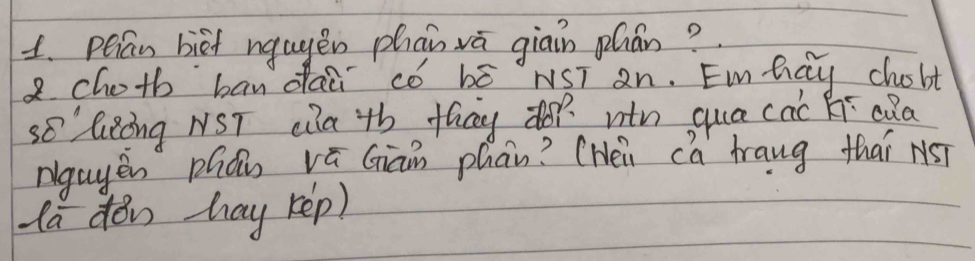 1. Phân biệt nguyên phân và giảm phân ?.
2. Cho tb ban đầu có bộ NST 2n. Em hãy cho bt
số lượng NST của tb thay đổi ntn qua các kì của
Nguyên phân và Giảm phân? (Nêu cả trạng thái NST
là đơn hay kép)